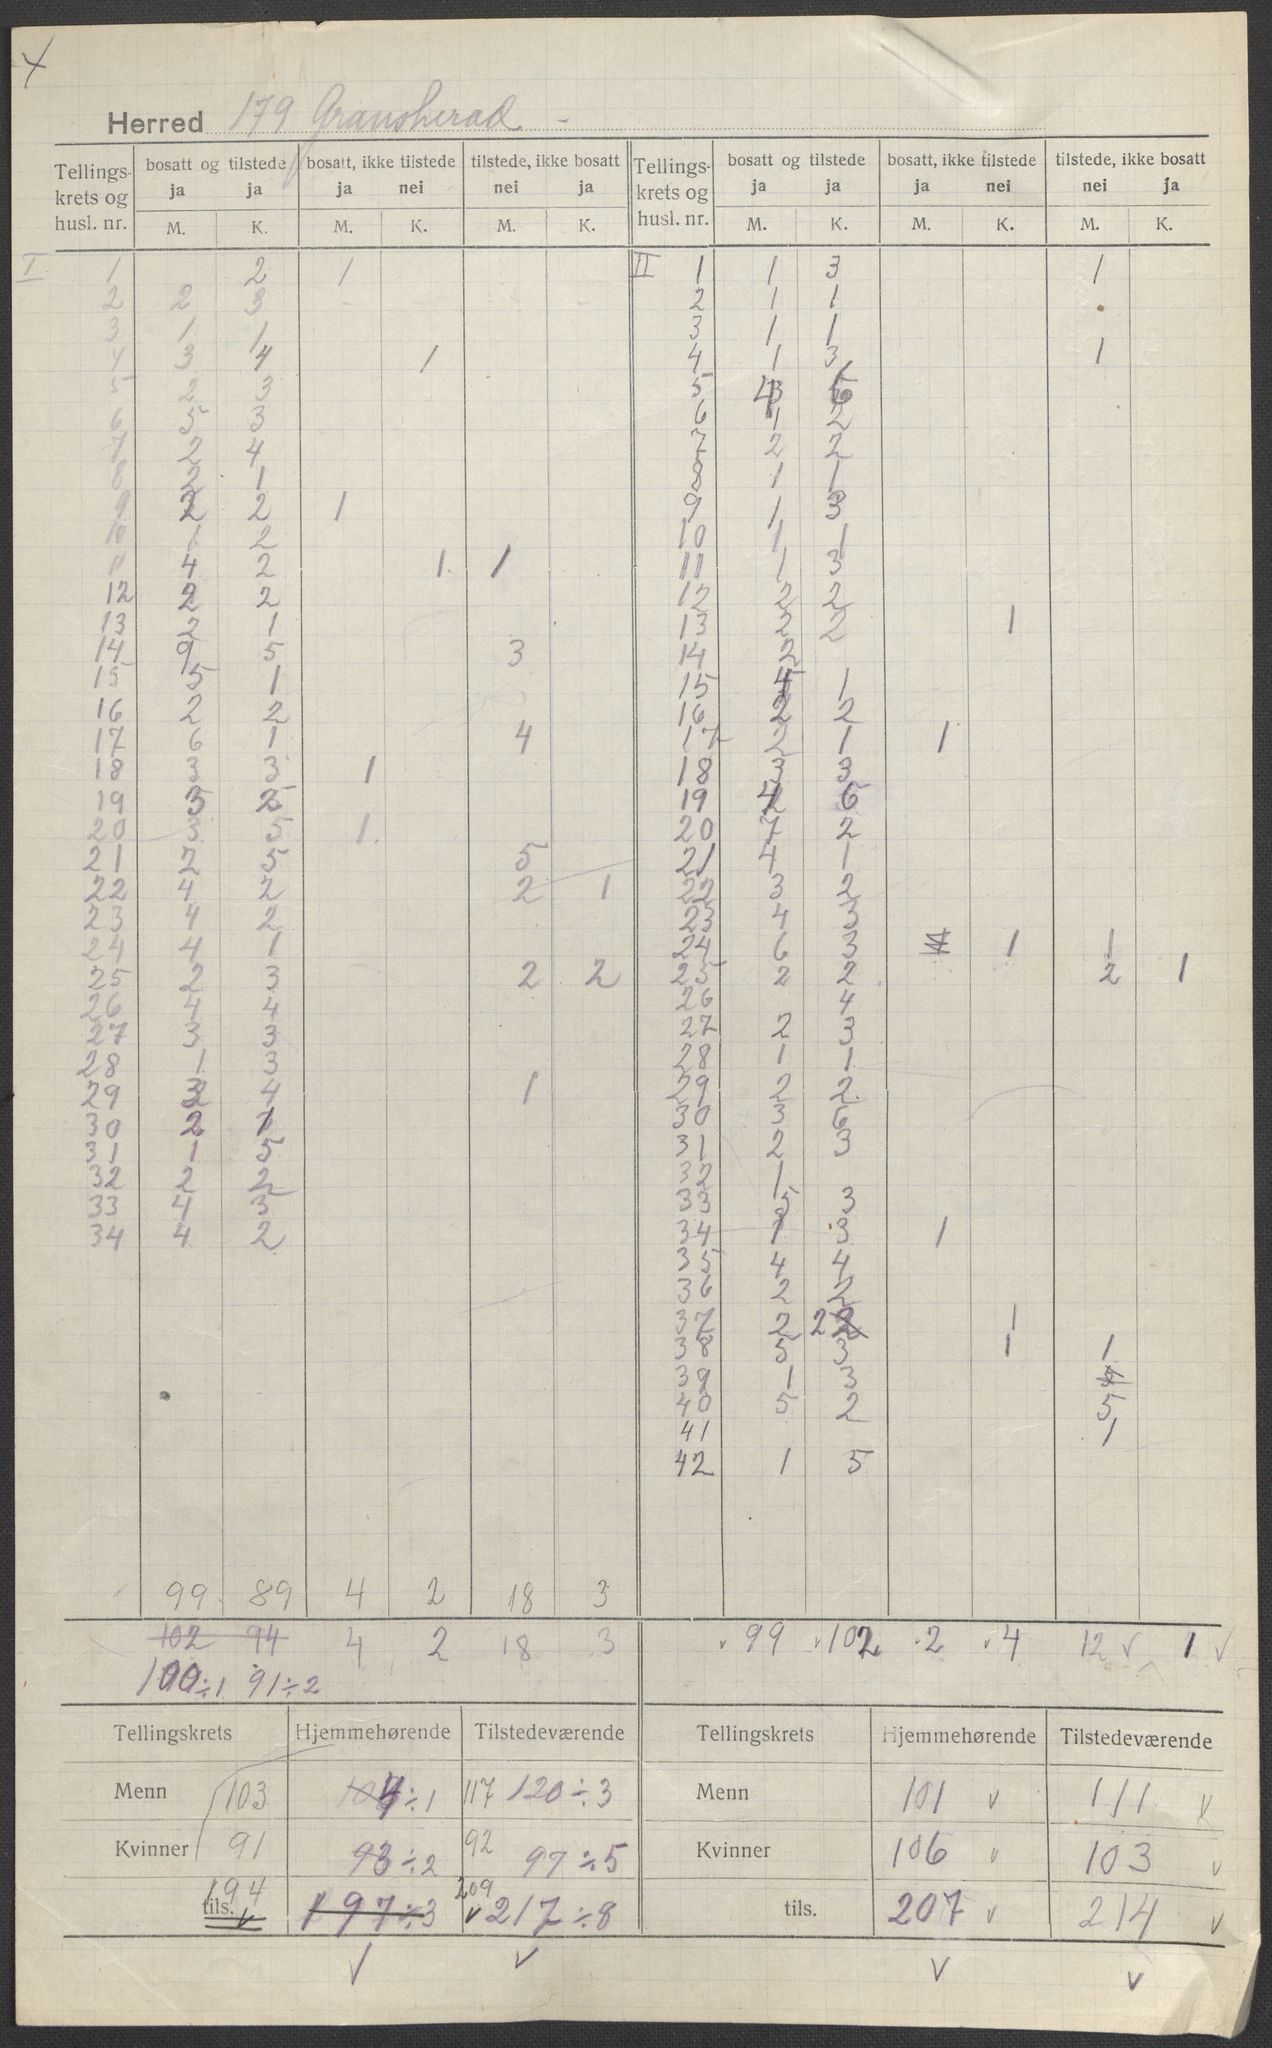 X
Herred 179 Gransherad -
Tellings-krets og husl. nr. | bosatt og tilstede ja ja | bosatt, ikke tilstede ja nei | tilstede, ikke bosatt nei ja | Tellings-krets og husl. nr. | bosatt og tilstede ja ja | bosatt, ikke tilstede ja nei | tilstede, ikke bosatt nei ja
M. K. M. K. M. K. M. K. M. K. M. K.
I 1 2 1 II 1 1 3 1
2 2 3 2 1 1
3 1 1 3 1 1
4 3 4 1 4 1 3 1
5 2 3 5
6 5 3 6 1 2
7 2 4 7 2 2
8 2 1 8 1 1
9 2 2 1 9 1 3
10 1 2 10 1 1
11 4 2 1 1 11 1 3
12 2 2 12 2 2
13 2 1 13 2 2 1
14 9 5 3 14 2
15 5 1 15 4 1
16 2 2 16 2 2
17 6 1 4 17 2 1 1
18 3 3 1 18 3 3
19 3 2 19 4 6
20 3 5 1 20 7 2
21 2 5 5 21 4 1
22 4 2 2 1 22 3 2
23 4 2 23 4 3
24 4 1 24 6 3 1 1
25 2 3 2 2 25 2 2 2 1
26 4 4 26 4
27 3 3 27 2 3
28 1 3 28 1 1
29 3 4 1 29 2 2
30 2 1 30 3 6
31 1 5 31 2 3
32 2 2 32 1
33 4 3 33 5 3
34 4 2 34 1 3 1
35 4 4
36 2 2
37 2 2 1
38 5 3 1 1
39 1 3
40 5 2 5
41 1
42 1 5
99 89 4 2 18 3
102 94 4 2 18 3 99 102 2 4 12 1
100÷1 91÷2
Tellingskrets Hjemmehørende Tilstedeværende Tellingskrets Hjemmehørende Tilstedeværende
Menn 103 104÷1 117 120÷3 Menn 101 111
Kvinner 91 93÷2 92 97÷5 Kvinner 106 103
tils. 194 197÷3 209 217÷8 tils. 207 214